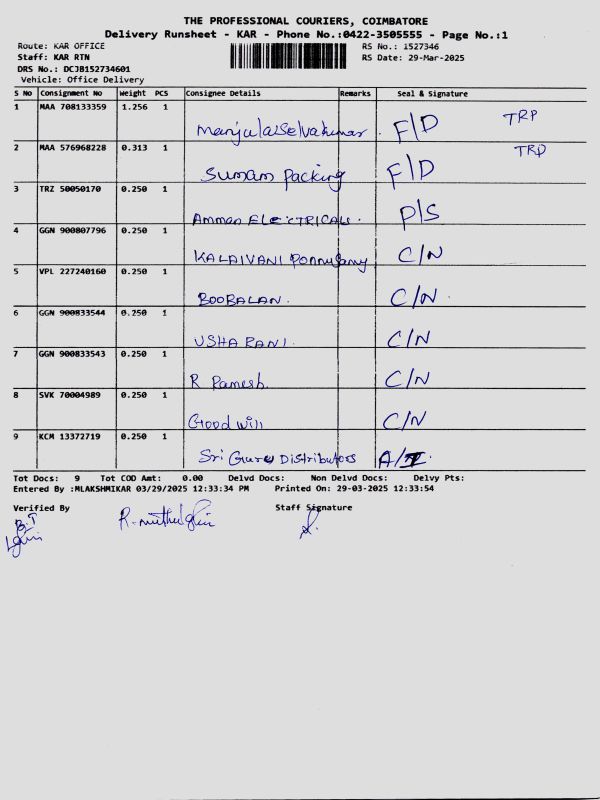 THE PROFESSIONAL COURIERS, COIMBATORE
Delivery Runsheet - KAR - Phone No.:0422-3505555 - Page No.:1
Route: KAR OFFICE RS No.: 1527346
Staff: KAR RTN RS Date: 29-Mar-2025
DRS No.: DCJB152734601
Vehicle: Office Delivery
S No Consignment No Weight PCS Consignee Details Remarks Seal & Signature
1 MAA 708133359 1.256 1 Manjula Selvakumar. F/D TRP
2 MAA 576968228 0.313 1 Sunam Packing F/D TRP
3 TRZ 50050170 0.250 1 Amman ELECTRICALS. P/S
4 GGN 900807796 0.250 1 KALAIVANI Ponnusamy C/N
5 VPL 227240160 0.250 1 BOOBALAN. C/N.
6 GGN 900833544 0.250 1 USHA RANI. C/N
7 GGN 900833543 0.250 1 R Ramesh. C/N
8 SVK 70004989 0.250 1 Good will C/N
9 KCM 13372719 0.250 1 Sri Guru Distributors A/I.
Tot Docs: 9 Tot COD Amt: 0.00 Delvd Docs: Non Delvd Docs: Delvy Pts:
Entered By :MLAKSHMIKAR 03/29/2025 12:33:34 PM Printed On: 29-03-2025 12:33:54
Verified By Staff Signature